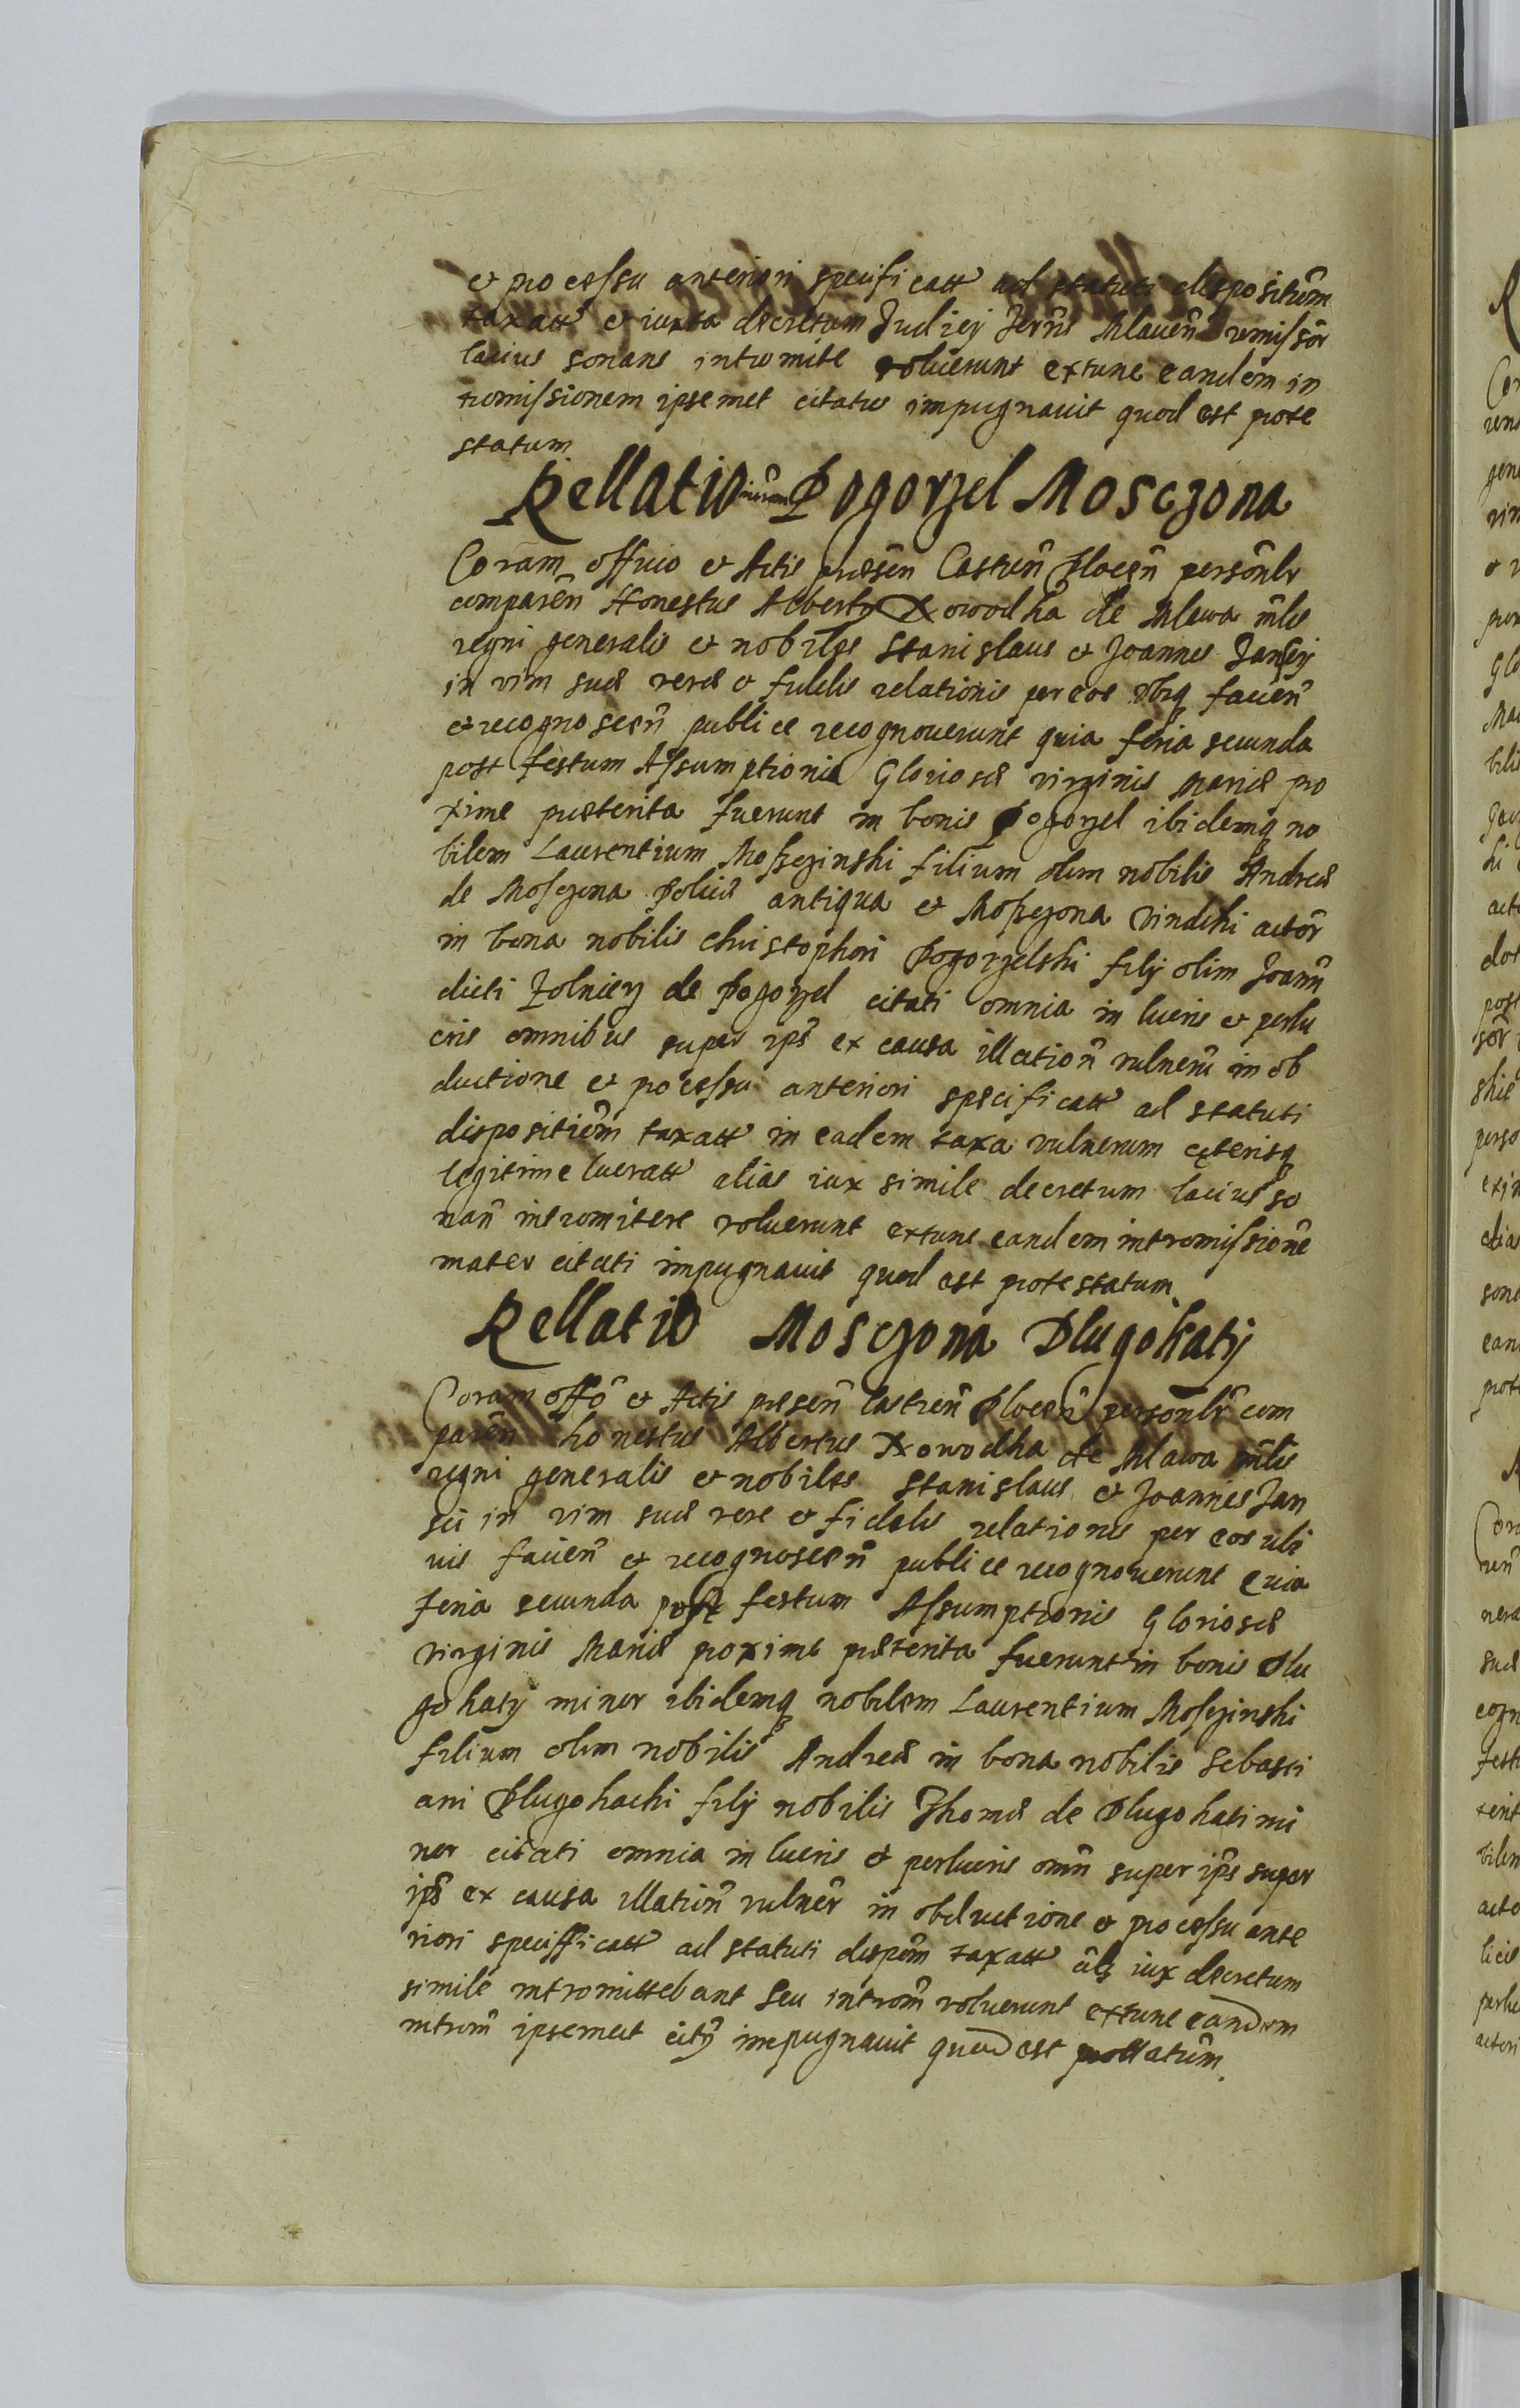 et processu anteriori specificatt ad statuti dispositiom
taxatt et iuxta decretum Judicij Terrn Mlauen remissor
lacius sonans intromite voluerunt extunc eandem in
tromissionem ipsemet citatus impugnauit quod est prote
statum
Rellatio Pogorzel Mosczona
Coram officio et Actis præsen Castren Plocen personlr
comparen Honestus Albertus Nowodka de Mlewa mlis
regni generalis et nobiles Stanislaus et Joannes Janscij
in vim suæ veræ et fidelis relationis per eos vtrq facien
et recognoscen publice recognouerunt quia feria secunda
post festum Assumptionis Gloriosæ virginis Mariæ pro
xime præterita fuerunt in bonis Pogorzel ibidemq no
bilem Laurentium Moszczinski filium olim nobilis Andreæ
de Mosczona antiqua et Moszczona actor
in bona nobilis Christophori Pogorzelski filij olim Joann
dicti Zolnierz de Pogorzel citati omnia in lucris et perlu
cris omnibus super ips ex causa illation vulnerū in ob
ductione et processu anteriori specificatt ad statuti
dispositiom taxatt in eadem taxa vulnerum cęterisq
legitime lucratt alias iux simile decretum lacius so
nan intromitere voluerunt extunc eandem intromissione
mater citati impugnauit quod est protestatum
Rellatio Mosczona Dlugokąty
Coram offo et Actis præsen Castren Plocen personlr com
paren honestus Albertus Nowodka de Mlawa mlis
regni generalis et nobiles Stanislaus et Joannes Jan
scii in vim suæ vere et fidelis relationis per eos
facien et recognoscen publice recognouerunt Quia
feria secunda post festum Assumptionis Gloriosæ
virginis Mariæ proxime præterita fuerunt in bonis Dlu
gokaty minor ibidemq nobilem Laurentium Mosczinski
filium olim nobilis Andreæ in bona nobilis Sebasti
ani Dlugokacki filij nobilis Thomæ de Dlugokati mi
nor citati omnia in lucris et perlucris omn super ips super
ips ex causa illation vulner in obductione et processu ante
riori speciffficatt ad statuti dispom taxatt als iux decretum
simile intromittebant seu introm voluerunt extunc eandem
introm ipsemet cits impugnauit quod est prottatum